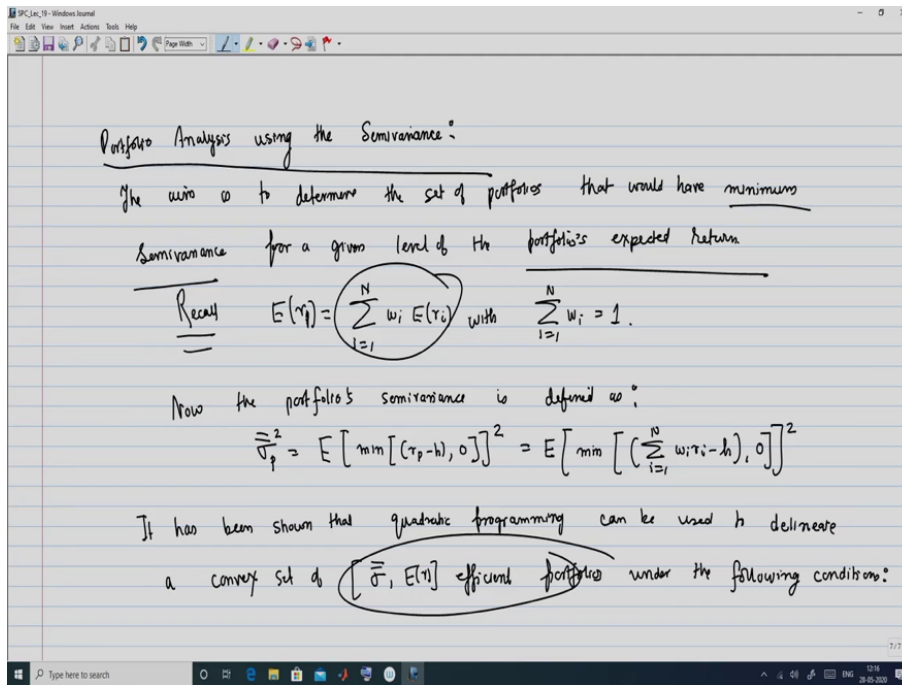 SPC_Lec_19 - Windows Journal
File Edit View Insert Actions Tools Help
Page Width
Portfolio Analysis using the Semivariance:
The aim is to determine the set of portfolios that would have minimum
semivariance for a given level of the portfolio's expected return.
Recall E(r_p) = \sum_{i=1}^{N} w_i E(r_i) with \sum_{i=1}^{N} w_i = 1.
Now the portfolio's semivariance is defined as:
\bar{\bar{σ}}_p^2 = E[min[(r_p-h), 0]]^2 = E[min[(\sum_{i=1}^{N} w_i r_i - h), 0]]^2
It has been shown that quadratic programming can be used to delineate
a convex set of [\bar{\bar{σ}}, E(r)] efficient portfolios under the following conditions:
7/7
Type here to search
ENG
12:16
28-05-2020